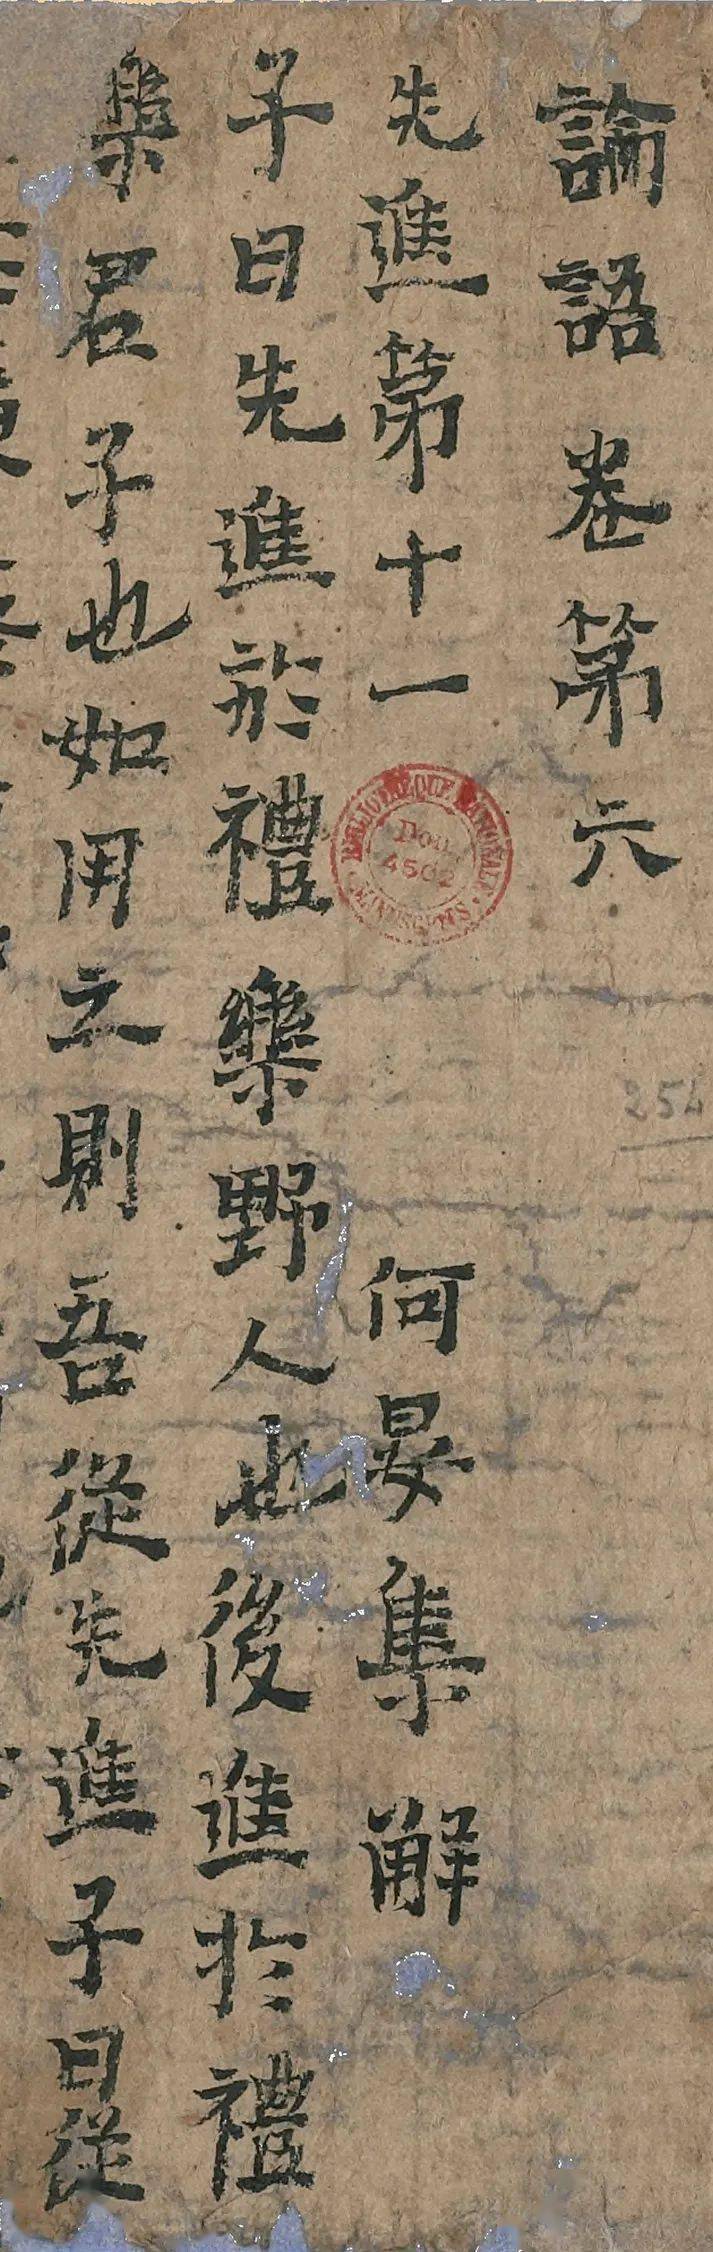 論語卷第六
先進第十一 何晏集解
子曰先進於禮樂野人也後進於禮
樂君子也如用之則吾從先進子曰從
BIBLIOTHÈQUE NATIONALE
Don
4502
MANUSCRITS
254